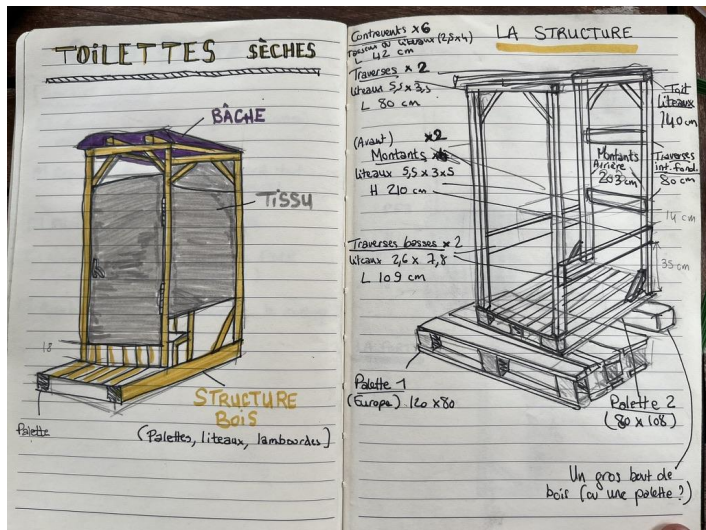 TOILETTES SÈCHES
BÂCHE
TISSU
18
STRUCTURE
BOIS
Palette
(Palettes, liteaux, lambourdes)
LA STRUCTURE
Contrevents x6
ou liteaux (2,5 x 4)
L 42 cm
Traverses x 2
liteaux 5,5 x 3,5
L 80 cm
(Avant) x2
Montants
liteaux 5,5 x 3,5
H 210 cm
Traverses basses x 2
liteaux 2,6 x 7,8
L 109 cm
Palette 1
(Europe) 120 x 80
Toit
liteaux
140 cm
Montants
Arrière
203 cm
Traverses
int. fond.
80 cm
14 cm
35 cm
Palette 2
(80 x 108)
Un gros bout de
bois (ou une palette ?)